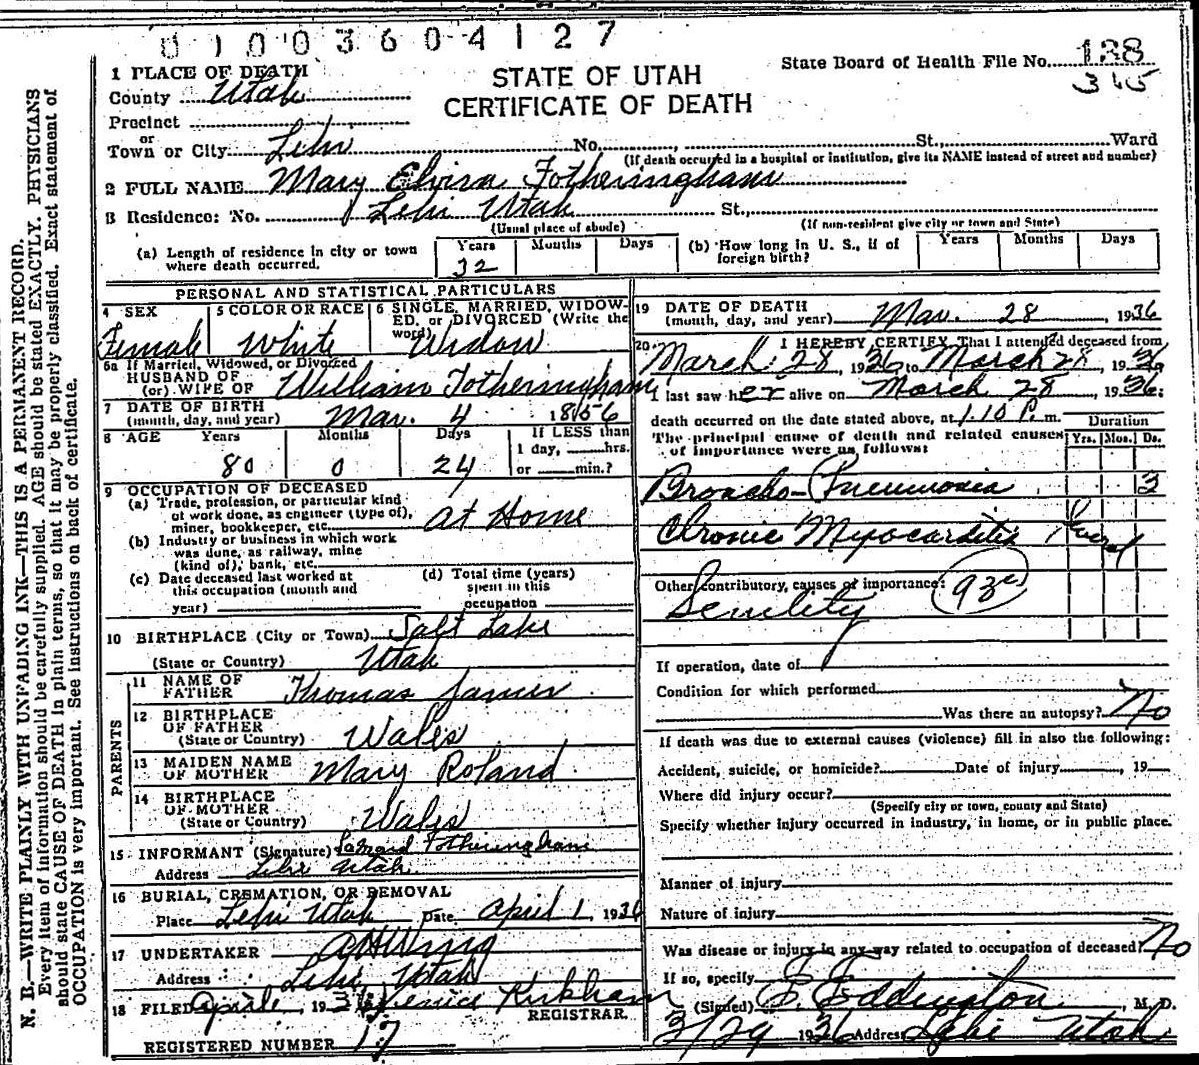 0 1 0 0 3 6 0 4 1 2 7
STATE OF UTAH
CERTIFICATE OF DEATH
State Board of Health File No. 138
365
1 PLACE OF DEATH
County Utah
Precinct
or
Town or City Lehi No. St., Ward
(If death occurred in a hospital or institution, give its NAME instead of street and number)
2 FULL NAME Mary Elvira Fotheringham
3 Residence: No. Lehi Utah St.,
(Usual place of abode) (If non-resident give city or town and State)
(a) Length of residence in city or town where death occurred. Years 32 Months Days
(b) How long in U. S., if of foreign birth? Years Months Days
PERSONAL AND STATISTICAL PARTICULARS
4 SEX Female
5 COLOR OR RACE White
6 SINGLE, MARRIED, WIDOWED, or DIVORCED (Write the word) Widow
6a If Married, Widowed, or Divorced
HUSBAND OF
(or) WIFE OF William Fotheringham
7 DATE OF BIRTH
(month, day, and year) Mar. 4 1856
8 AGE Years 80 Months 0 Days 24
If LESS than
1 day, hrs.
or min.?
9 OCCUPATION OF DECEASED
(a) Trade, profession, or particular kind
of work done, as engineer (type of),
miner, bookkeeper, etc. At Home
(b) Industry or business in which work
was done, as railway, mine
(kind of), bank, etc.
(c) Date deceased last worked at
this occupation (month and
year)
(d) Total time (years)
spent in this
occupation
10 BIRTHPLACE (City or Town) Salt Lake
(State or Country) Utah
PARENTS
11 NAME OF
FATHER Thomas James
12 BIRTHPLACE
OF FATHER
(State or Country) Wales
13 MAIDEN NAME
OF MOTHER Mary Roland
14 BIRTHPLACE
OF MOTHER
(State or Country) Wales
15 INFORMANT (Signature) Fotheringham
Address Lehi Utah
16 BURIAL, CREMATION, OR REMOVAL
Place Lehi Utah Date April 1, 1936
17 UNDERTAKER A H Wing
Address Lehi Utah
18 FILED 1936 Kirkham
REGISTRAR.
REGISTERED NUMBER 17
19 DATE OF DEATH
(month, day, and year) Mar. 28, 1936
20 I HEREBY CERTIFY, That I attended deceased from
March 28, 1936 to March 28, 1936
I last saw her alive on March 28, 1936:
death occurred on the date stated above, at 1.10 P. m.
The principal cause of death and related causes
of importance were as follows:
Duration
Yrs. Mos. Ds.
Broncho-Pneumonia 3
Chronic Myocarditis
Other contributory causes of importance: 93c
Senility
If operation, date of
Condition for which performed
Was there an autopsy? No
If death was due to external causes (violence) fill in also the following:
Accident, suicide, or homicide? Date of injury, 19
Where did injury occur?
(Specify city or town, county and State)
Specify whether injury occurred in industry, in home, or in public place.
Manner of injury
Nature of injury
Was disease or injury in any way related to occupation of deceased? No
If so, specify
(Signed) Eddington, M. D.
3/29 1936 Address Lehi Utah
N. B.—WRITE PLAINLY WITH UNFADING INK—THIS IS A PERMANENT RECORD.
Every item of information should be carefully supplied. AGE should be stated EXACTLY. PHYSICIANS
should state CAUSE OF DEATH in plain terms, so that it may be properly classified. Exact statement of
OCCUPATION is very important. See instructions on back of certificate.